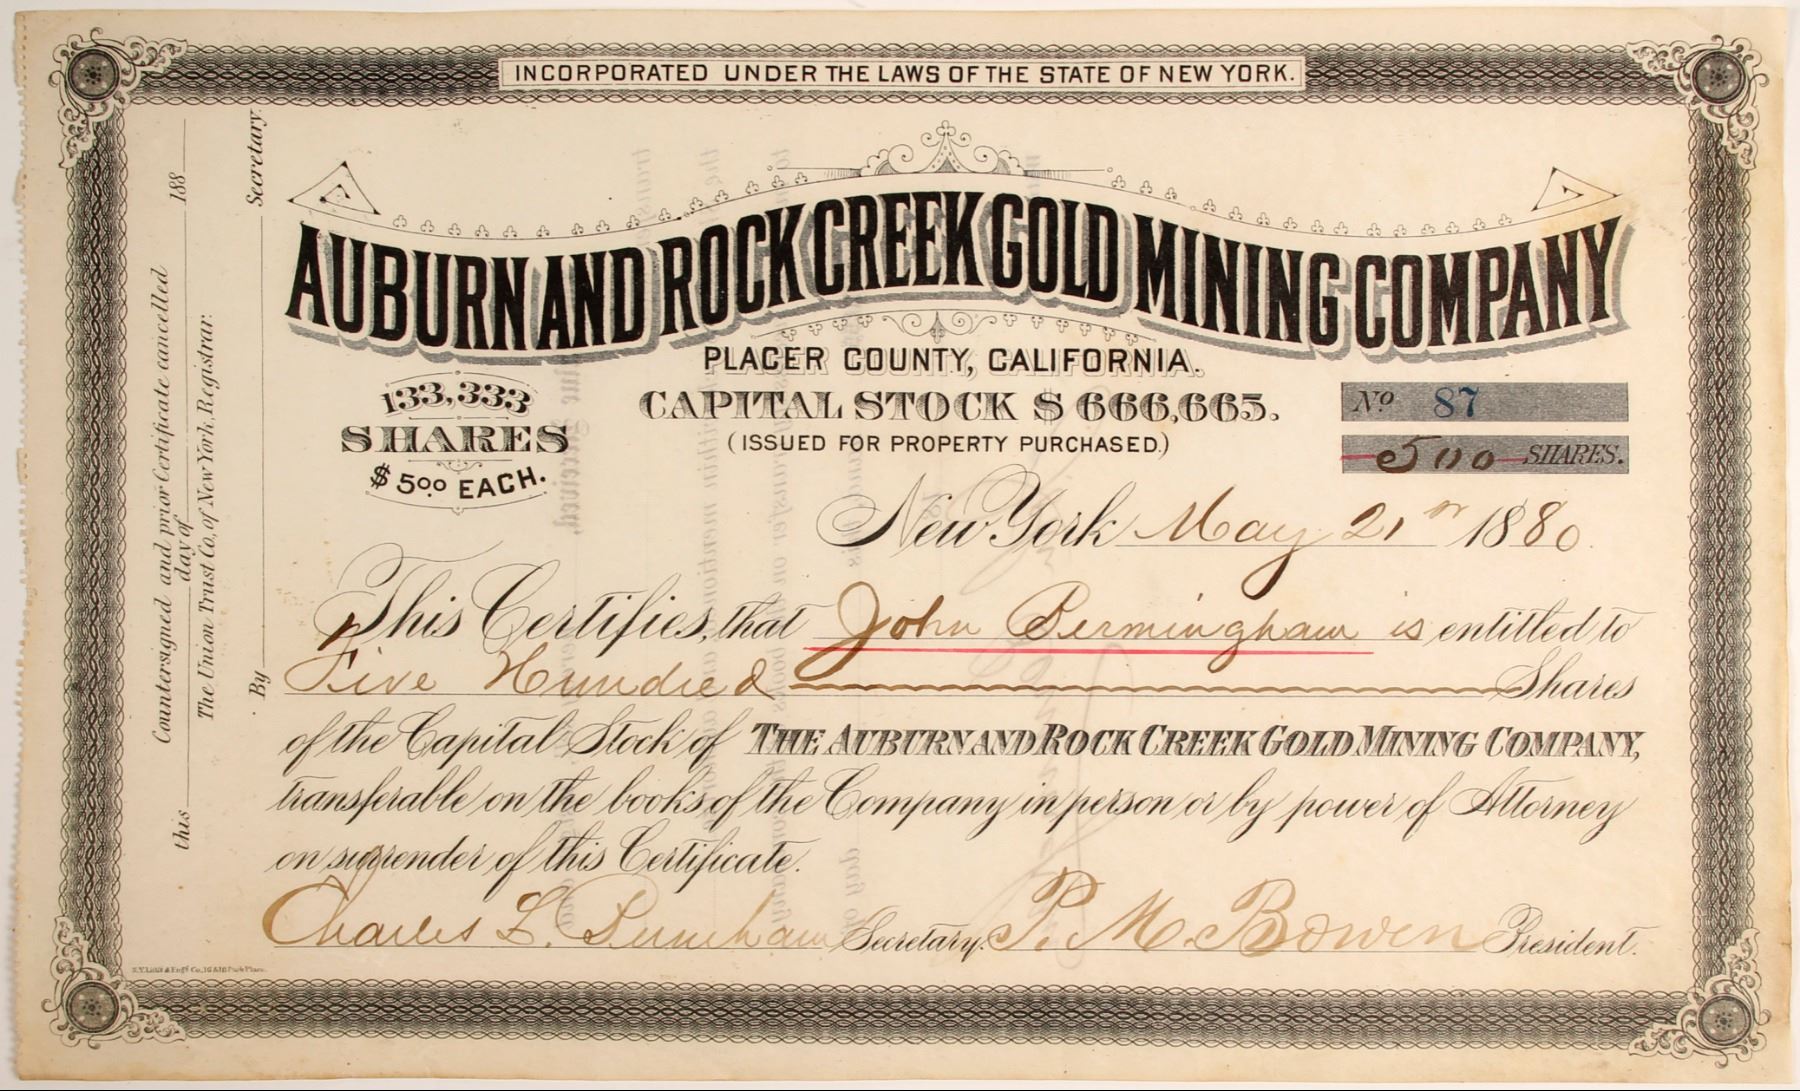 INCORPORATED UNDER THE LAWS OF THE STATE OF NEW YORK.
AUBURN AND ROCK CREEK GOLD MINING COMPANY
PLACER COUNTY, CALIFORNIA.
133,333
SHARES
$5.00 EACH.
CAPITAL STOCK $666,665.
(ISSUED FOR PROPERTY PURCHASED.)
No 87
500 SHARES.
New York May 21 1880
This Certifies, that John Bermingham is entitled to
Five Hundred Shares
of the Capital Stock of THE AUBURN AND ROCK CREEK GOLD MINING COMPANY,
transferable on the books of the Company in person or by power of Attorney
on surrender of this Certificate.
Charles L. Secretary. P. M. Bowen President.
Countersigned and prior Certificate cancelled
this day of 188
The Union Trust Co, of New York, Registrar.
By Secretary